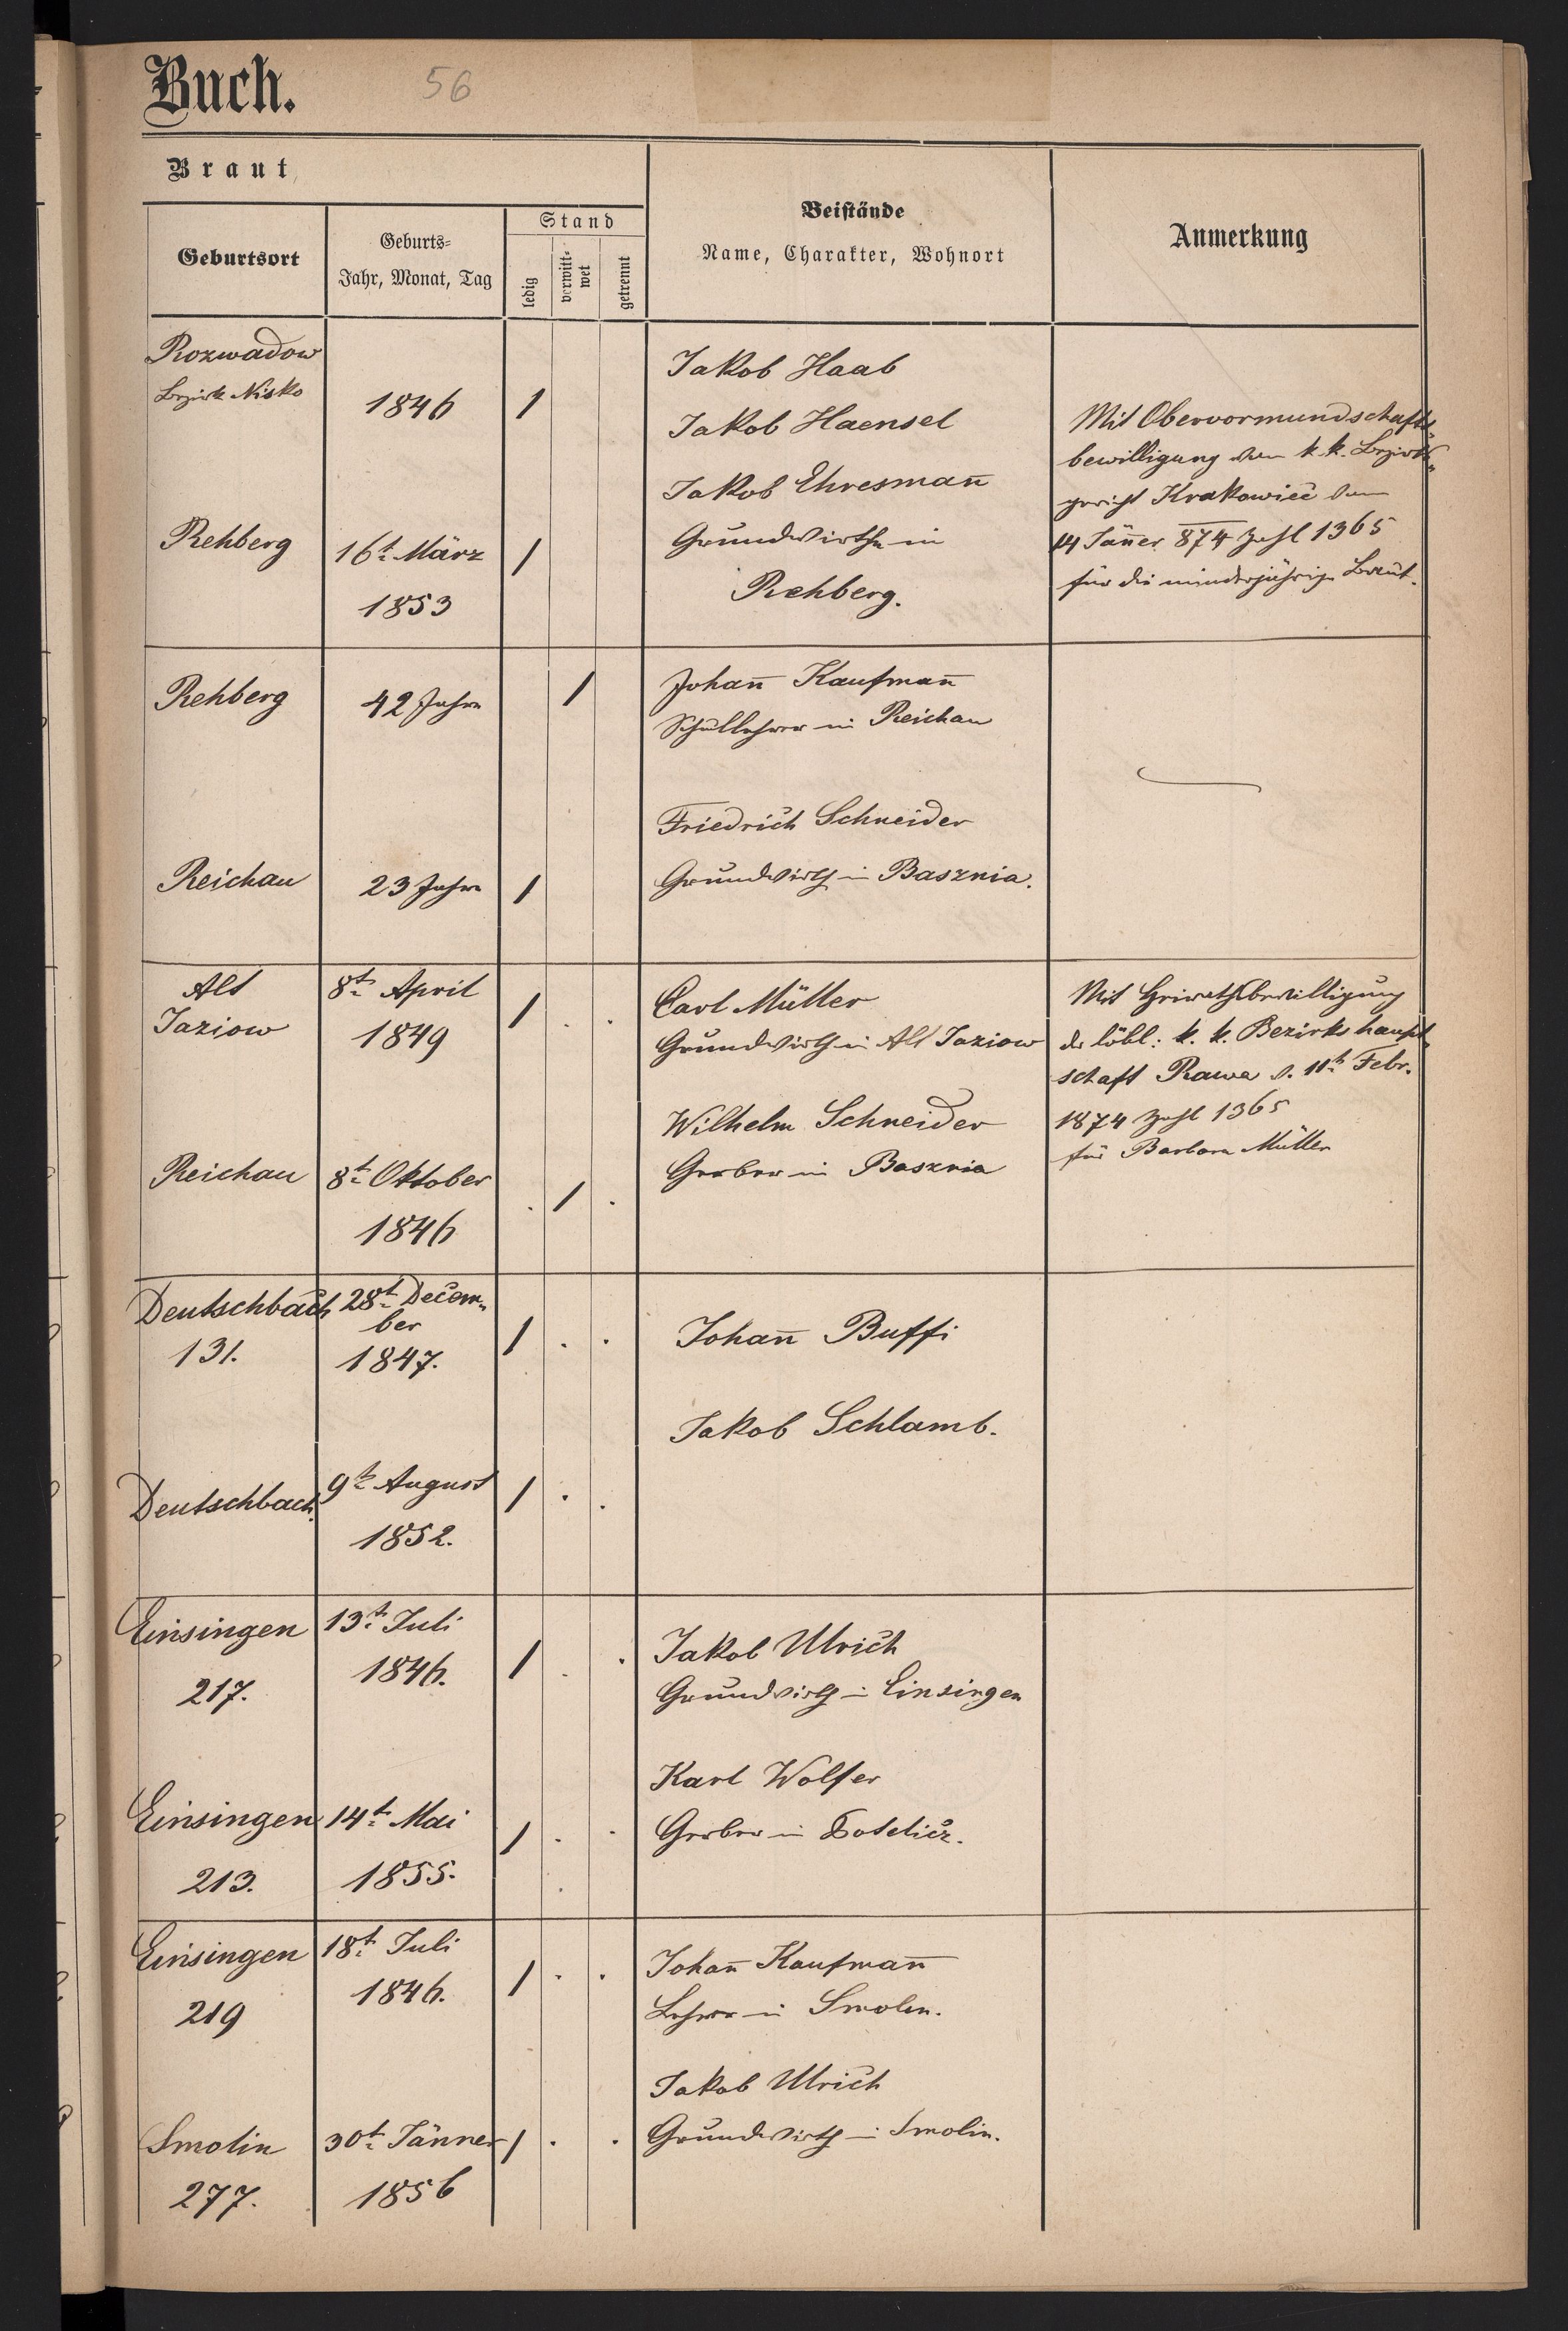 Buch.
56
Braut
Geburtsort
Geburts-
Jahr, Monat, Tag
Stand
ledig
verwitt-
wet
getrennt
Beistände
Name, Charakter, Wohnort
Anmerkung
Rozwadow
Bezirk Nisko
1846
1
Rehberg
16t März
1853
1
Jakob Haab
Jakob Haensel
Jakob Ehresman̅
Grundwirthe in
Rehberg.
Mit Obervormundschafts-
bewilligung vom k. k. Bezirks-
gericht Krakowiec vom
14 Jän̅er 874 Zahl 1365
für die minderjährige Braut.
Rehberg
42 Jahre
1
Reichau
23 Jahre
1
Johan̅ Kaufman̅
Schullehrer in Reichau
Friedrich Schneider
Grundwirth in Basznia.
Alt
Jaziow
8t April
1849
1 . .
Reichau
8t Oktober
1846
. 1 .
Carl Müller
Grundwirth in Alt Jaziow
Wilhelm Schneider
Gerber in Basznia
Mit Heirathsbewilligung
der löbl: k. k. Bezirkshaupt-
schaft Rawa v. 11t Febr.
1874 Zahl 1365
für Barbara Müller
Deutschbach
131.
28t Decem-
ber
1847.
1 . .
Deutschbach.
9t August
1852.
1 . .
Johan̅ Buffi
Jakob Schlamb.
Einsingen
217.
13t Juli
1846.
1 . .
Einsingen
213.
14t Mai
1855.
1 . .
Jakob Ulrich
Grundwirth in Einsingen
Karl Wolfer
Gerber in Potelicz.
Einsingen
219
18t Juli
1846.
1 . .
Smolin
277.
30t Jänner
1856
1 . .
Johan̅ Kaufman̅
Lehrer in Smolin.
Jakob Ulrich
Grundwirth in Smolin.